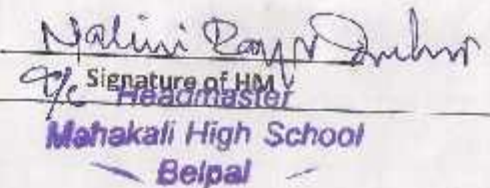 Nalini
I/c Signature of HM
Headmaster
Mahakali High School
Belpal